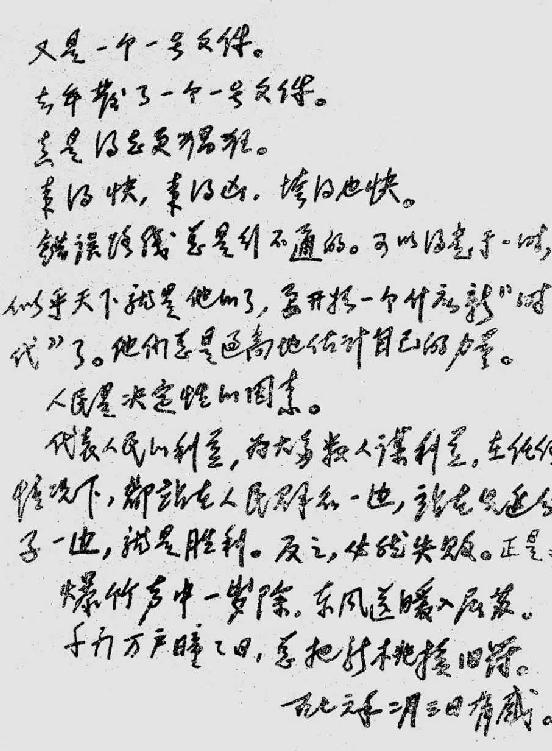 又是一个一号文件。
去年發了一个一号文件。
真是得志更猖狂。
来得快，来得凶，垮得也快。
错误路线总是行不通的。可以得意于一时，
似乎天下就是他的了，要开始一个什么新“时
代”了。他们总是过高地估计自己的力量。
人民是决定性的因素。
代表人民的利益，为大多数人谋利益，在任何
情况下，都站在人民群众一边，站在先进分
子一边，就是胜利。反之，必然失败。正是：
爆竹声中一岁除，东风送暖入屠苏。
千门万户瞳々日，总把新桃换旧符。
一九七六年二月三日有感。